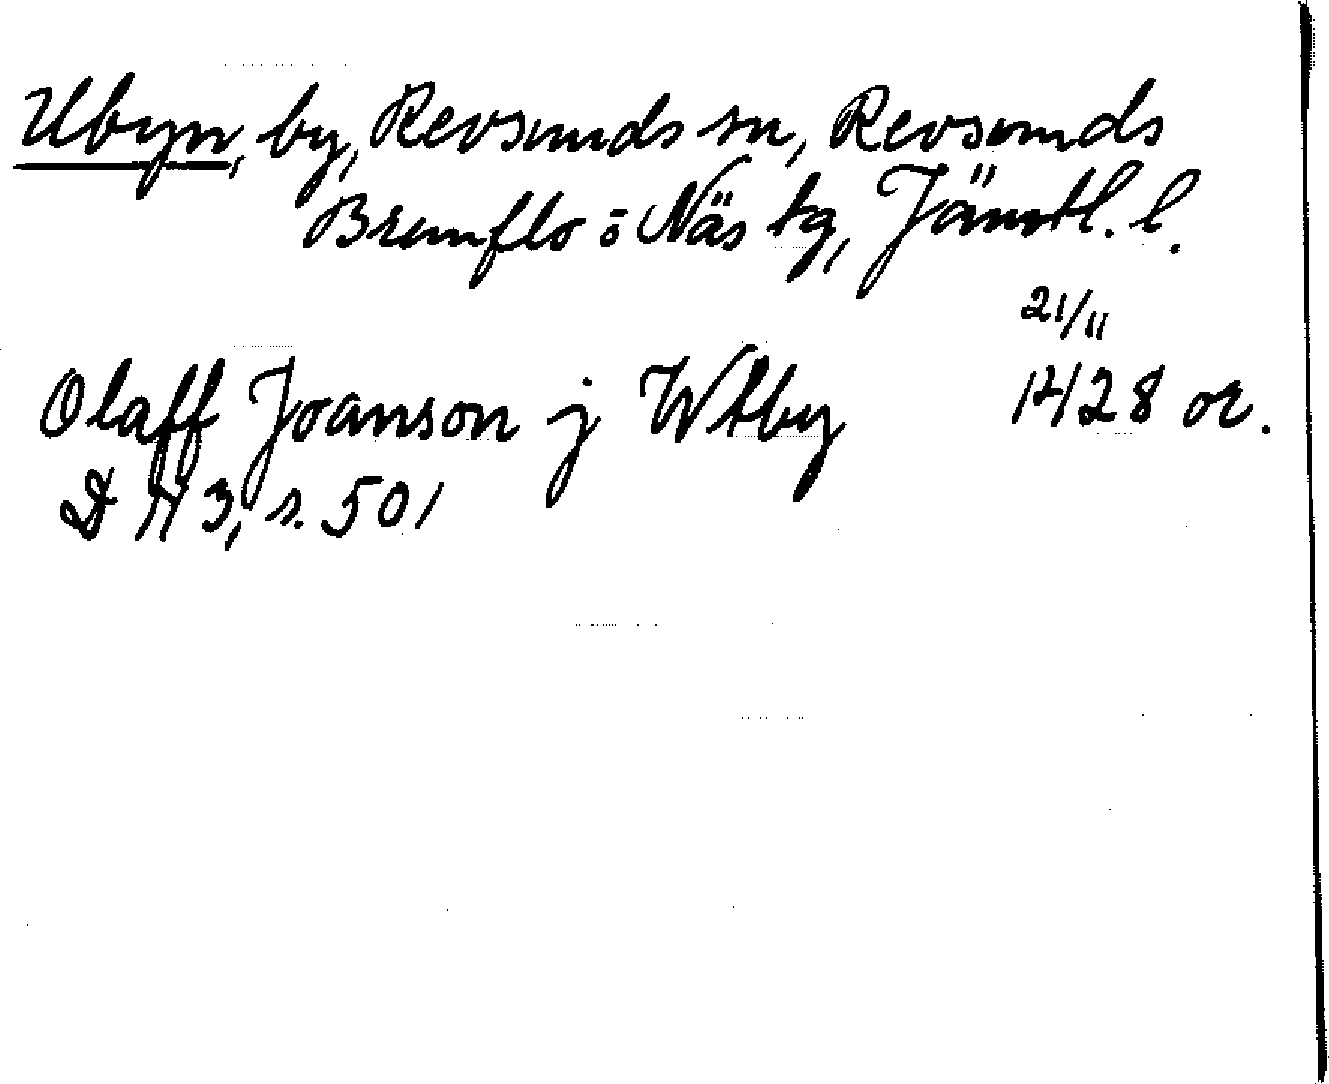 Ubyn, by, Revsunds sn, Revsunds
Brunflo o Näs tg, Jämtl. l.
21/11
Olaff Joanson j Wtby 1428 or.
DN 3, s. 501